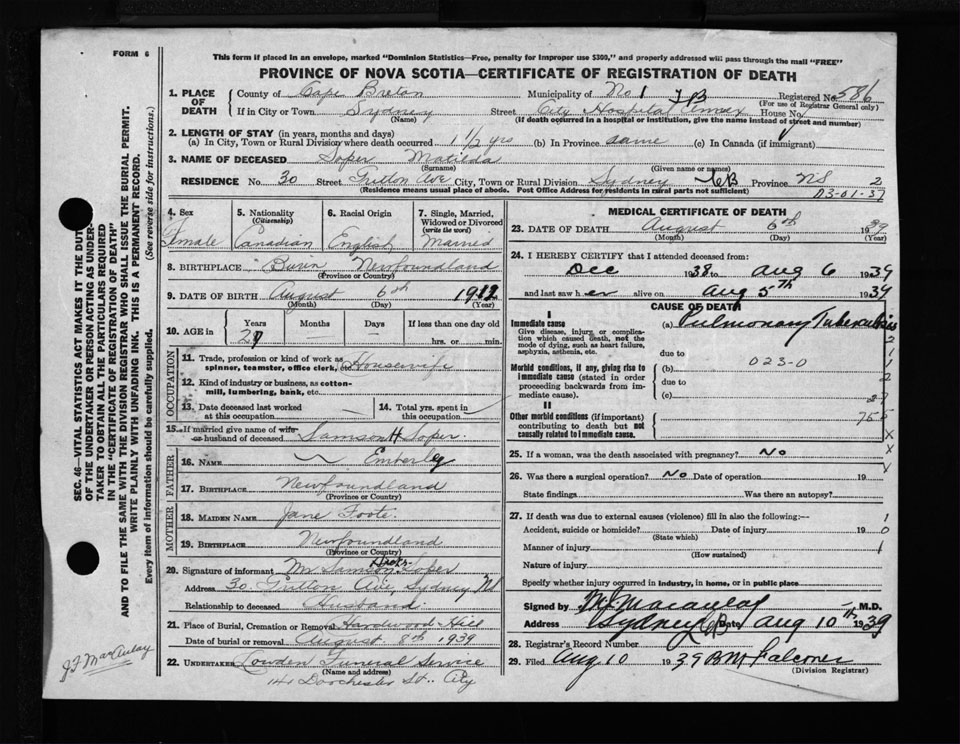 FORM 6
This form if placed in an envelope, marked "Dominion Statistics—Free, penalty for improper use $300," and properly addressed will pass through the mail "FREE"
PROVINCE OF NOVA SCOTIA—CERTIFICATE OF REGISTRATION OF DEATH
1. PLACE OF DEATH
County of Cape Breton Municipality of No 1 Registered No. 586
(For use of Registrar General only)
If in City or Town Sydney Street City Hospital Annex House No.
(Name) (If death occurred in a hospital or institution, give the name instead of street and number)
2. LENGTH OF STAY (in years, months and days)
(a) In City, Town or Rural Division where death occurred 1 1/2 yrs (b) In Province same (c) In Canada (if immigrant)
3. NAME OF DECEASED Soper Matilda
(Surname) (Given name or names)
RESIDENCE No. 30 Street Ave City, Town or Rural Division Sydney CB Province NS 2
(Residence means usual place of abode. Post Office Address for residents in rural parts not sufficient)
4. Sex Female
5. Nationality (Citizenship) Canadian
6. Racial Origin English
7. Single, Married, Widowed or Divorced (write the word) Married
8. BIRTHPLACE Burin Newfoundland
(Province or Country)
9. DATE OF BIRTH August 6th 1912
(Month) (Day) (Year)
10. AGE in Years Months Days If less than one day old
27 — — hrs. or min.
OCCUPATION
11. Trade, profession or kind of work as spinner, teamster, office clerk, etc. Housewife
12. Kind of industry or business, as cotton-mill, lumbering, bank, etc.
13. Date deceased last worked at this occupation
14. Total yrs. spent in this occupation
15. If married give name of wife or husband of deceased Samson H Soper
FATHER
16. NAME Emberley
17. BIRTHPLACE Newfoundland
(Province or Country)
MOTHER
18. MAIDEN NAME Jane Foote
19. BIRTHPLACE Newfoundland
(Province or Country)
20. Signature of informant Mr Samson Soper
Address 30 Ave, Sydney NS
Relationship to deceased Husband
21. Place of Burial, Cremation or Removal Hardwood Hill
Date of burial or removal August 8th 1939
22. UNDERTAKER Lowden Funeral Service
(Name and address)
141 Dorchester St. City
MEDICAL CERTIFICATE OF DEATH
23. DATE OF DEATH August 6th 1939
(Month) (Day) (Year)
24. I HEREBY CERTIFY that I attended deceased from:
Dec 1938 to Aug 6 1939
and last saw her alive on Aug 5th 1939
CAUSE OF DEATH
I
Immediate cause
Give disease, injury, or complication which caused death, not the mode of dying, such as heart failure, asphyxia, asthenia, etc.
(a) Pulmonary Tuberculosis
due to
Morbid conditions, if any, giving rise to immediate cause (stated in order proceeding backwards from immediate cause)
(b) 023-0
due to
(c)
II
Other morbid conditions (if important) contributing to death but not causally related to immediate cause.
25. If a woman, was the death associated with pregnancy? No
26. Was there a surgical operation? No Date of operation 19
State findings Was there an autopsy?
27. If death was due to external causes (violence) fill in also the following:—
Accident, suicide or homicide? Date of injury 19
(State which)
Manner of injury
(How sustained)
Nature of injury
Specify whether injury occurred in industry, in home, or in public place
Signed by M. J. Macaulay M.D.
Address Sydney CB Date Aug 10th 1939
28. Registrar's Record Number
29. Filed Aug 10 1939 B M Falconer
(Division Registrar)
SEC. 46—VITAL STATISTICS ACT MAKES IT THE DUTY OF THE UNDERTAKER OR PERSON ACTING AS UNDERTAKER TO OBTAIN ALL THE PARTICULARS REQUIRED IN THE "CERTIFICATE OF REGISTRATION OF DEATH" AND TO FILE THE SAME WITH THE DIVISION REGISTRAR WHO SHALL ISSUE THE BURIAL PERMIT.
WRITE PLAINLY WITH UNFADING INK. THIS IS A PERMANENT RECORD.
Every item of information should be carefully supplied. (See reverse side for instructions.)
J F MacAulay